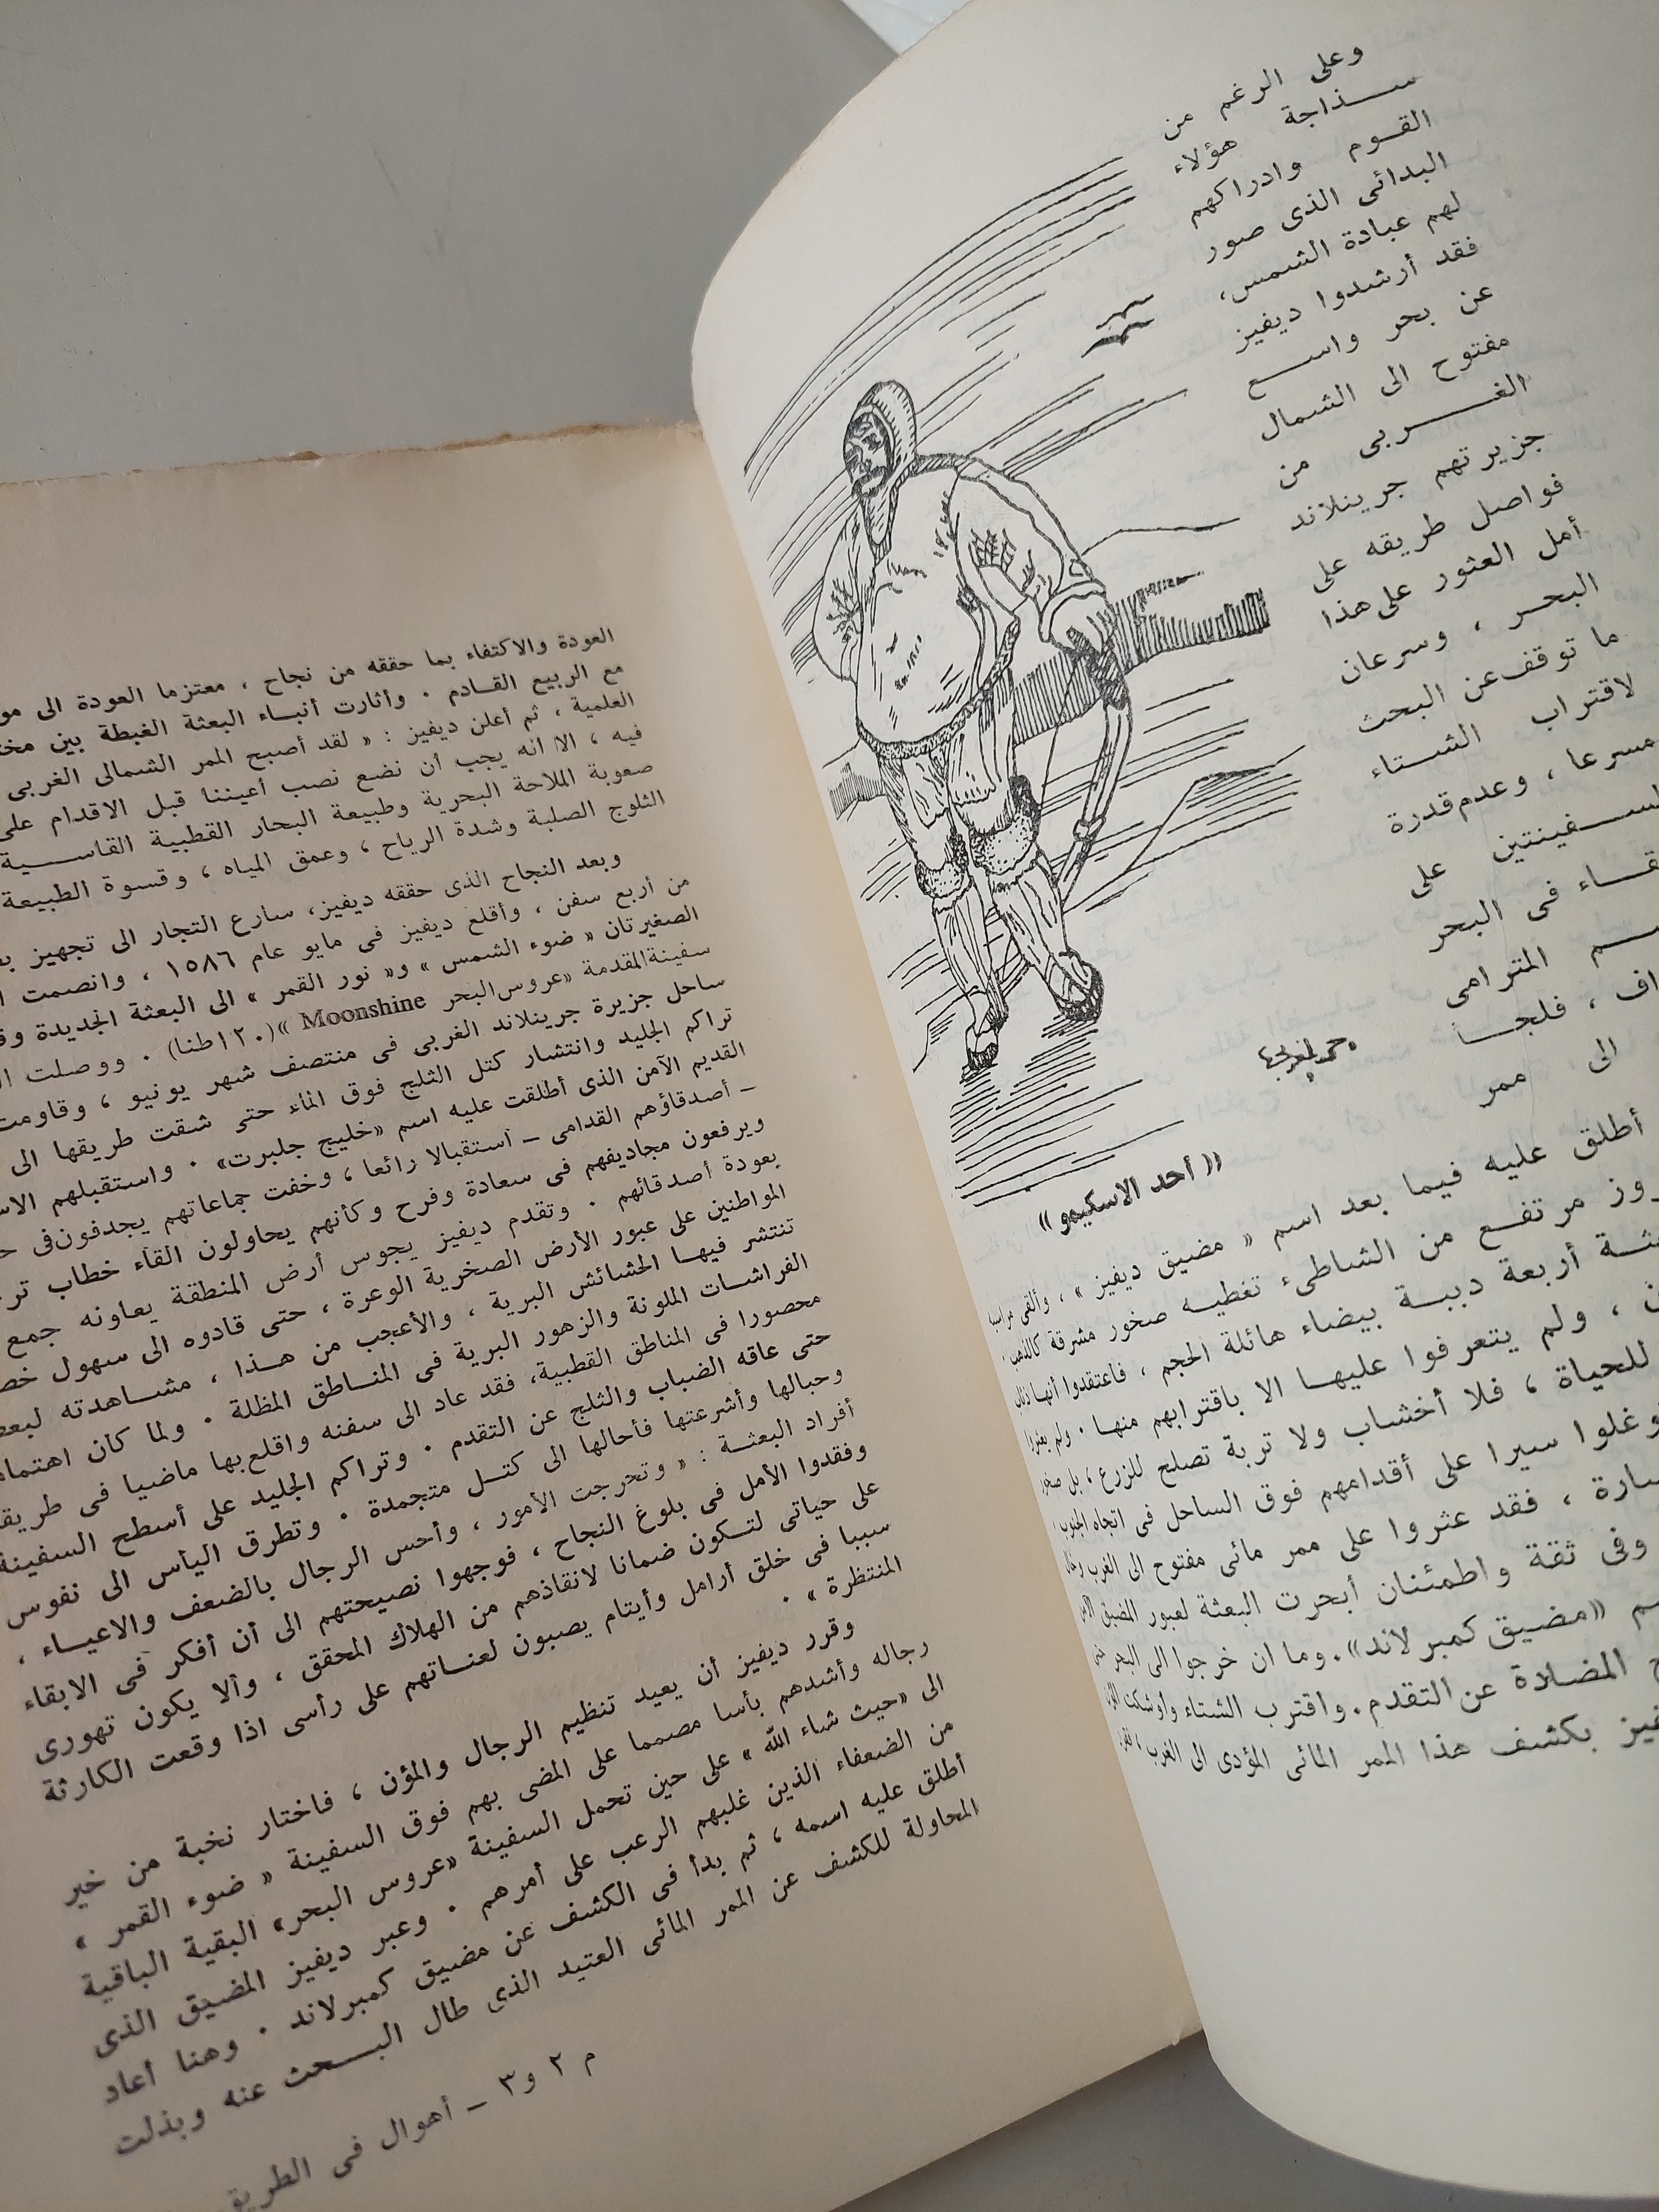 وعلى الرغم من
سذاجة هؤلاء
القوم وادراكهم
البدائى الذى صور
لهم عبادة الشمس،
فقد أرشدوا ديفيز
عن بحر واسع
مفتوح الى الشمال
الغربى من
جزيرتهم جرينلاند
فواصل طريقه على
أمل العثور على هذا
البحر ، وسرعان
ما توقف عن البحث
لاقتراب الشتاء
مسرعا ، وعدم قدرة
السفينتين على
فى البحر
المترامى
، فلجأ
الى ممر
« أحد الاسكيمو »
أطلق عليه فيما بعد اسم « مضيق ديفيز » ، وألقى مراسيه
مرتفع من الشاطىء تغطيه صخور مشرقة كالذهب
أربعة دببة بيضاء هائلة الحجم ، فاعتقدوا أنها
، ولم يتعرفوا عليها الا باقترابهم منها . ولم يعثروا
للحياة ، فلا أخشاب ولا تربة تصلح للزرع ، بل صخور
سيرا على أقدامهم فوق الساحل فى اتجاه الجنوب
سارة ، فقد عثروا على ممر مائى مفتوح الى الغرب
وفى ثقة واطمئنان أبحرت البعثة لعبور المضيق
«مضيق كمبرلاند» . وما ان خرجوا الى البحر حتى
المضادة عن التقدم . واقترب الشتاء وأوشكت
بكشف هذا الممر المائى المؤدى الى الغرب ،
العودة والاكتفاء بما حققه من نجاح ، معتزما العودة الى
مع الربيع القادم . وأثارت أنباء البعثة الغبطة بين
العلمية ، ثم أعلن ديفيز : « لقد أصبح الممر الشمالى الغربى
فيه ، الا انه يجب أن نضع نصب أعيننا قبل الاقدام على
صعوبة الملاحة البحرية وطبيعة البحار القطبية القاسية
الثلوج الصلبة وشدة الرياح ، وعمق المياه ، وقسوة الطبيعة
وبعد النجاح الذى حققه ديفيز، سارع التجار الى تجهيز
من أربع سفن ، وأقلع ديفيز فى مايو عام ١٥٨٦ ، وانضمت
الصغيرتان « ضوء الشمس » و« نور القمر » الى البعثة الجديدة
سفينة المقدمة «عروس البحر Moonshine » (١٢٠ طنا) . ووصلت
ساحل جزيرة جرينلاند الغربى فى منتصف شهر يونيو ، وقاومت
تراكم الجليد وانتشار كتل الثلج فوق الماء حتى شقت طريقها الى
القديم الآمن الذى أطلقت عليه اسم «خليج جلبرت» . واستقبلهم
– أصدقاؤهم القدامى – استقبالا رائعا ، وخفت جماعاتهم يجدفون فى
ويرفعون مجاديفهم فى سعادة وفرح وكأنهم يحاولون القاء خطاب
بعودة أصدقائهم . وتقدم ديفيز يجوس أرض المنطقة يعاونه جمع
المواطنين على عبور الأرض الصخرية الوعرة ، حتى قادوه الى سهول
تنتشر فيها الحشائش البرية ، والأعجب من هذا ، مشاهدته
الفراشات الملونة والزهور البرية فى المناطق المظلة . ولما كان
محصورا فى المناطق القطبية، فقد عاد الى سفنه واقلع بها ماضيا فى
حتى عاقه الضباب والثلج عن التقدم . وتراكم الجليد على أسطح السفينة
وحبالها وأشرعتها فأحالها الى كتل متجمدة . وتطرق اليأس الى نفوس
أفراد البعثة : « وتحرجت الأمور ، وأحس الرجال بالضعف والاعياء ،
وفقدوا الأمل فى بلوغ النجاح ، فوجهوا نصيحتهم الى أن أفكر فى الابقاء
على حياتى لتكون ضمانا لانقاذهم من الهلاك المحقق ، وألا يكون تهورى
سببا فى خلق أرامل وأيتام يصبون لعناتهم على رأسى اذا وقعت الكارثة
المنتظرة » .
وقرر ديفيز أن يعيد تنظيم الرجال والمؤن ، فاختار نخبة من خير
رجاله وأشدهم بأسا مصمما على المضى بهم فوق السفينة « ضوء القمر »
الى «حيث شاء الله » على حين تحمل السفينة «عروس البحر» البقية الباقية
من الضعفاء الذين غلبهم الرعب على أمرهم . وعبر ديفيز المضيق الذى
أطلق عليه اسمه ، ثم بدأ فى الكشف عن مضيق كمبرلاند . وهنا أعاد
المحاولة للكشف عن الممر المائى العتيد الذى طال البحث عنه وبذلت
م ٢ و٣ – أهوال فى الطريق